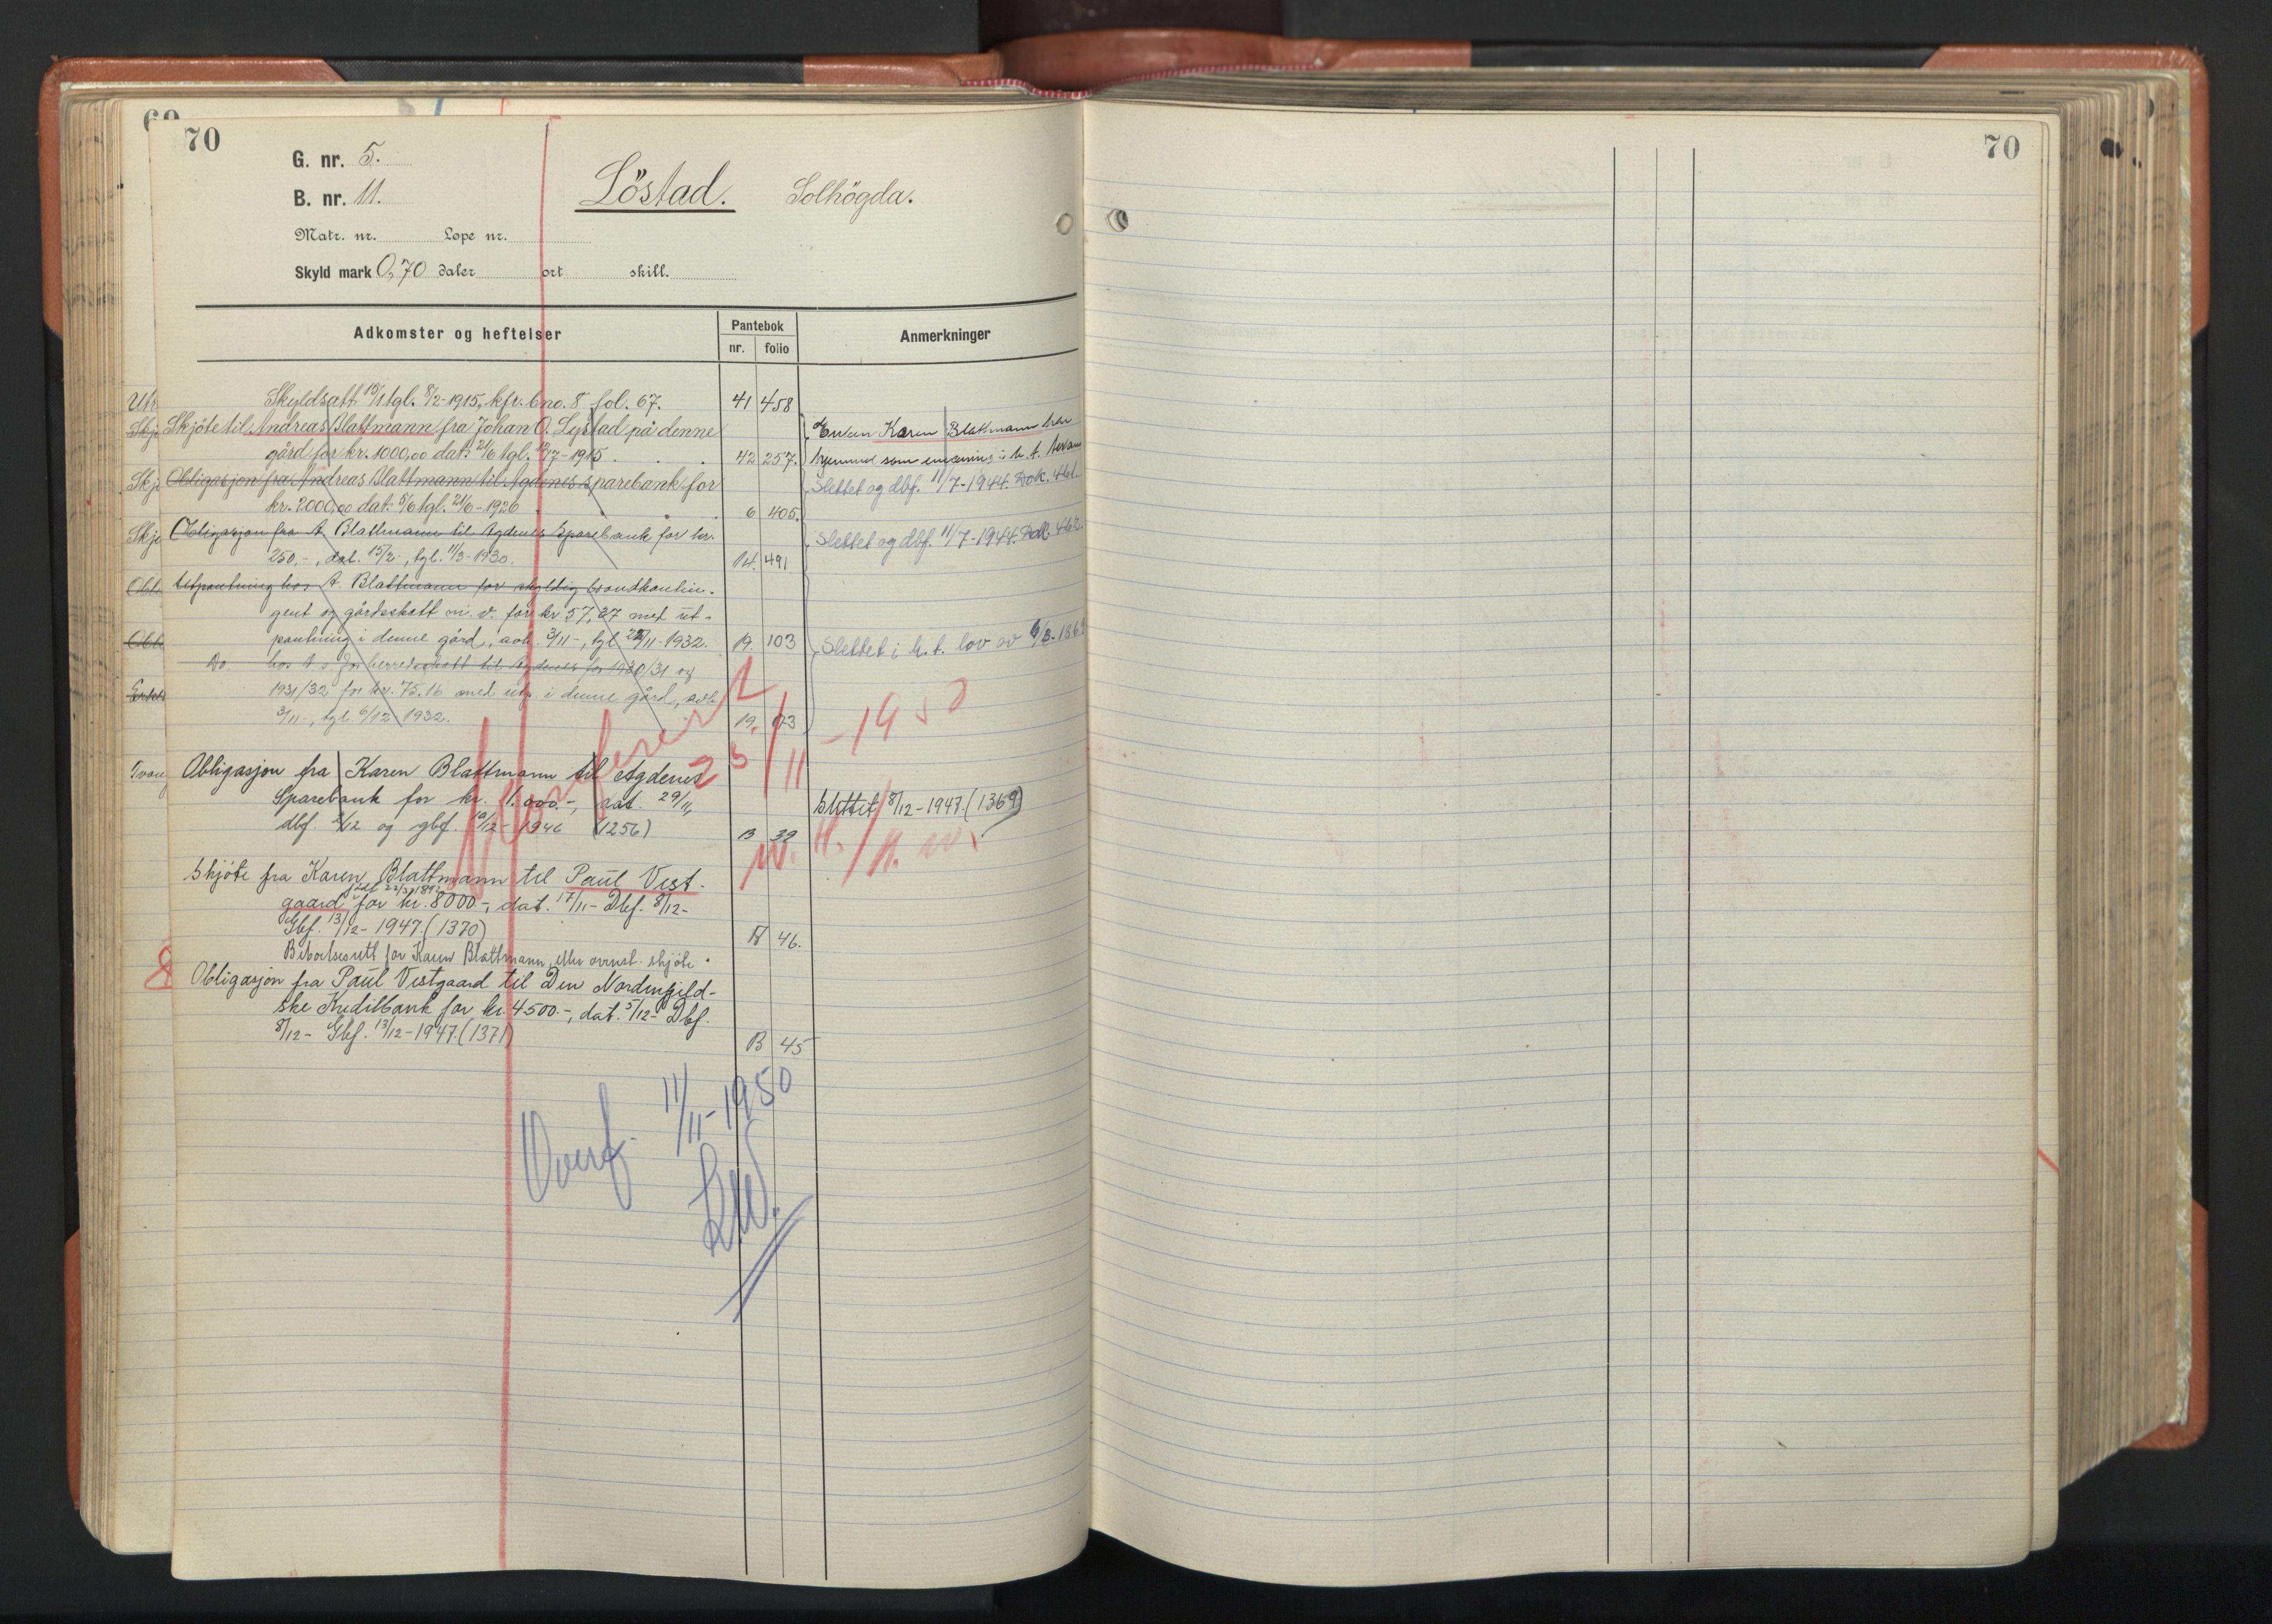 70
70
G. nr. 5.
B. nr. 11.
Löstad. Solhögda.
Matr. nr. Løpe nr.
Skyld mark 0,70 daler ort skill.
Adkomster og heftelser
Pantebok
nr. folio
Anmerkninger
Skyldsatt 15/1 tgl. 8/2-1915, kfr. bno. 8 fol. 67. 41 458
Skjöte til Andreas Blattmann fra Johan O. Lystad på denne
gård for kr. 1000,00 dat. 21/6 tgl. 12/7-1915. 42 257.
Enken Karen Blattmann har
hjemmel som eneaving i h. t.
Obligasjon fra Andreas Blattmann til Agdenes sparebank for
kr. 2000,00 dat. 5/6 tgl. 21/6-1926 6 405.
Slettet og dbf. 11/7-1944. Dok. 461.
Obligasjon fra A. Blattmann til Agdenes Sparebank for kr.
250,-, dat. 15/2-, tgl. 11/3-1930. 14. 491
Slettet og dbf. 11/7-1944. Dok. 462.
Utpantning hos A. Blattmann for skyldig brandkontin-
gent og gårdsskatt m. v. for kr. 57,87 med ut-
pantning i denne gård, avh. 3/11-, tgl. 22/11-1932. 19. 103
Slettet i h. t. lov av 6/3-1869
Do hos A. B. for herredsskatt til Agdenes for 1930/31 og
1931/32 for kr. 75.16 med utp. i denne gård, avh.
3/11-, tgl. 6/12-1932. 19. 123
Konferert
25/11-1950
Obligasjon fra Karen Blattmann til Agdenes
Sparebank for kr. 1.000.-, dat. 29/11,
dbf. 2/12 og gbf. 10/12-1946 (1256) B 39
Slettet 8/12-1947. (1369)
Skjöte fra Karen Blattmann til Paul Vest-
gaard for kr. 8000-, dat. 17/11- Dbf. 8/12-
Gbf. 13/12-1947. (1370) B 46.
Boboelsesrett for Karen Blattmann, etter ovenst. skjöte.
Obligasjon fra Paul Vestgaard til Den Nordenfjeld-
ske Kreditbank for kr. 4500.-, dat. 5/12- Dbf.
8/12- Gbf. 13/12-1947. (1371) B 45
Overf. 11/11-1950